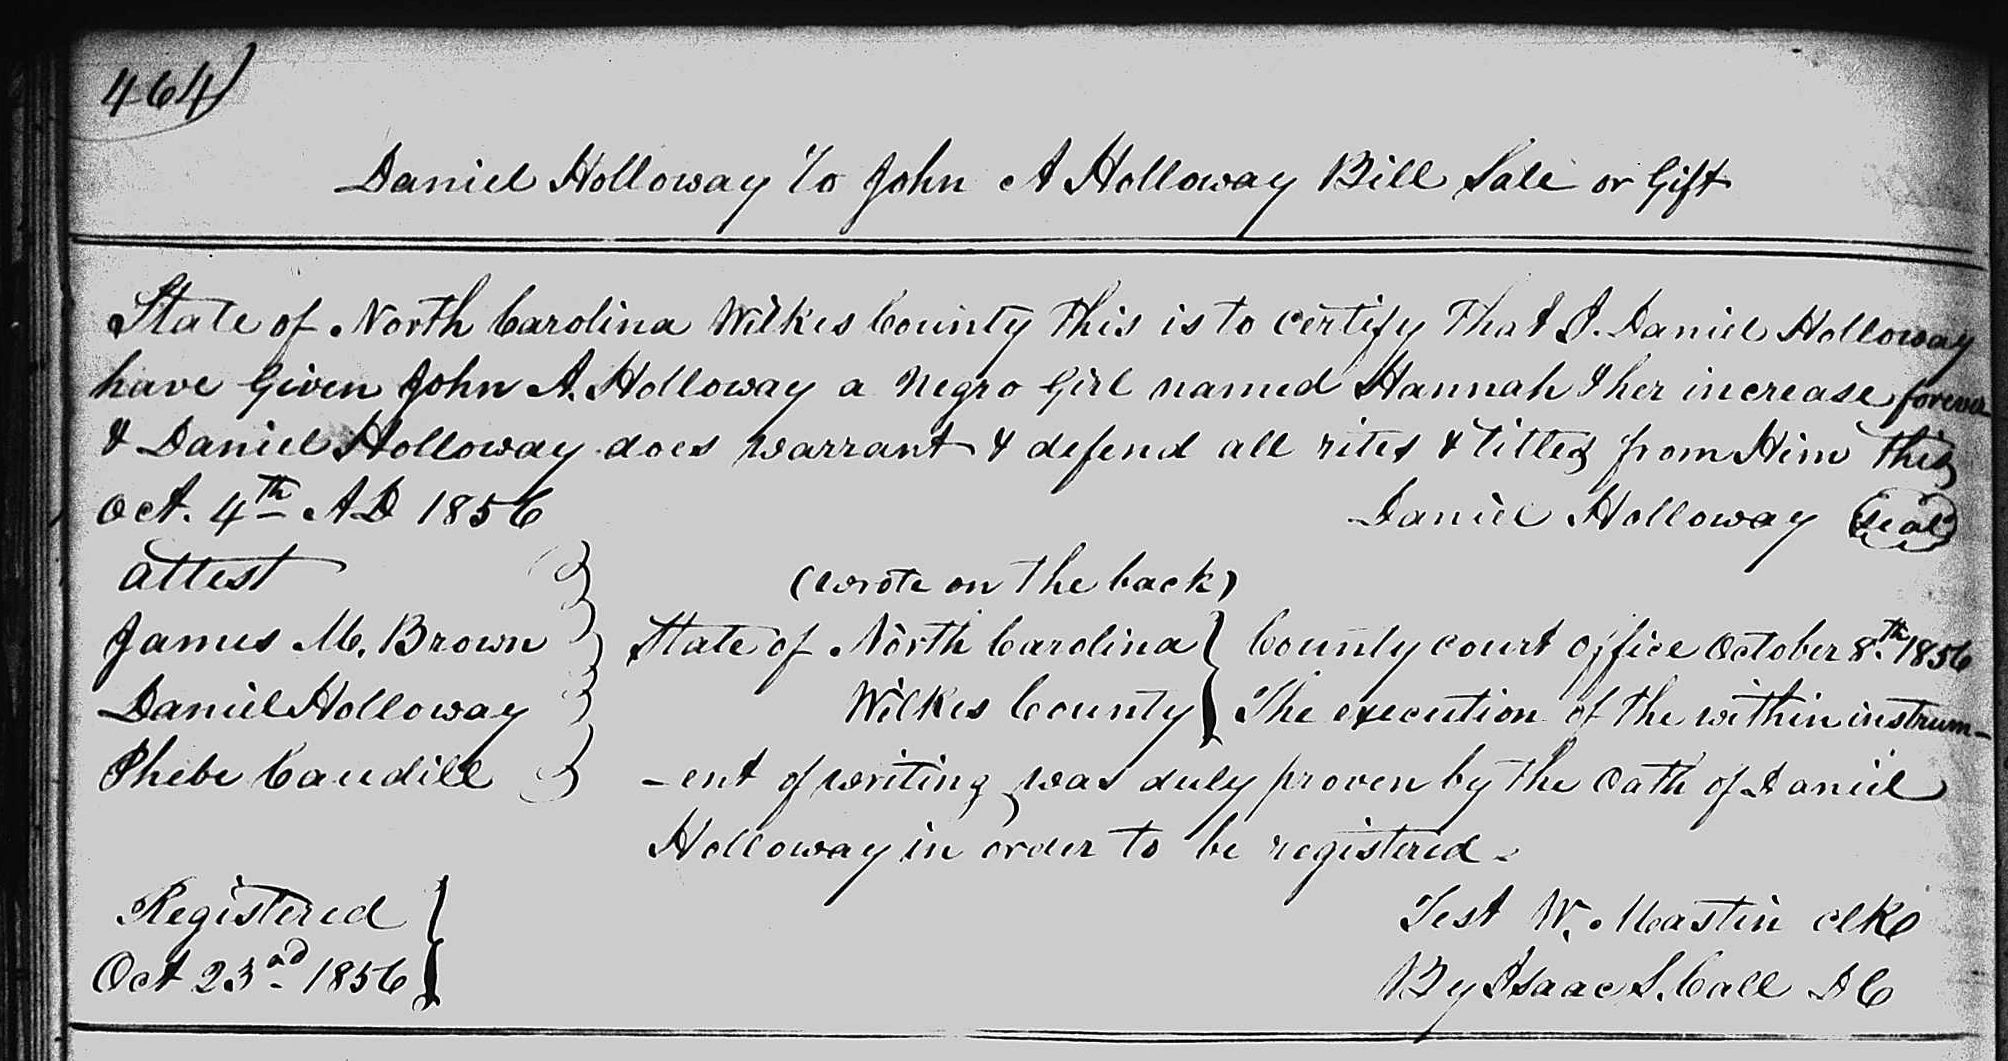 464)
Daniel Holloway To John A Holloway Bill Sale or Gift
State of North Carolina Wilkes County This is to certify That I. Daniel Holloway
have Given John A. Holloway a Negro Girl named Hannah & her increase forever
& Daniel Holloway does warrant & defend all rites & titles from Him this
Oct. 4th AD 1856
Daniel Holloway (seal)
attest
(wrote on the back)
James M. Brown
Daniel Holloway
Phebe Caudill
State of North Carolina } County court office October 8th. 1856
Wilkes County } The execution of the within instrum-
-ent of writing was duly proven by the Oath of Daniel
Holloway in order to be registered.
Registered
Oct 23rd 1856
Test W. Mastin clk
By Isaac S. Call DC